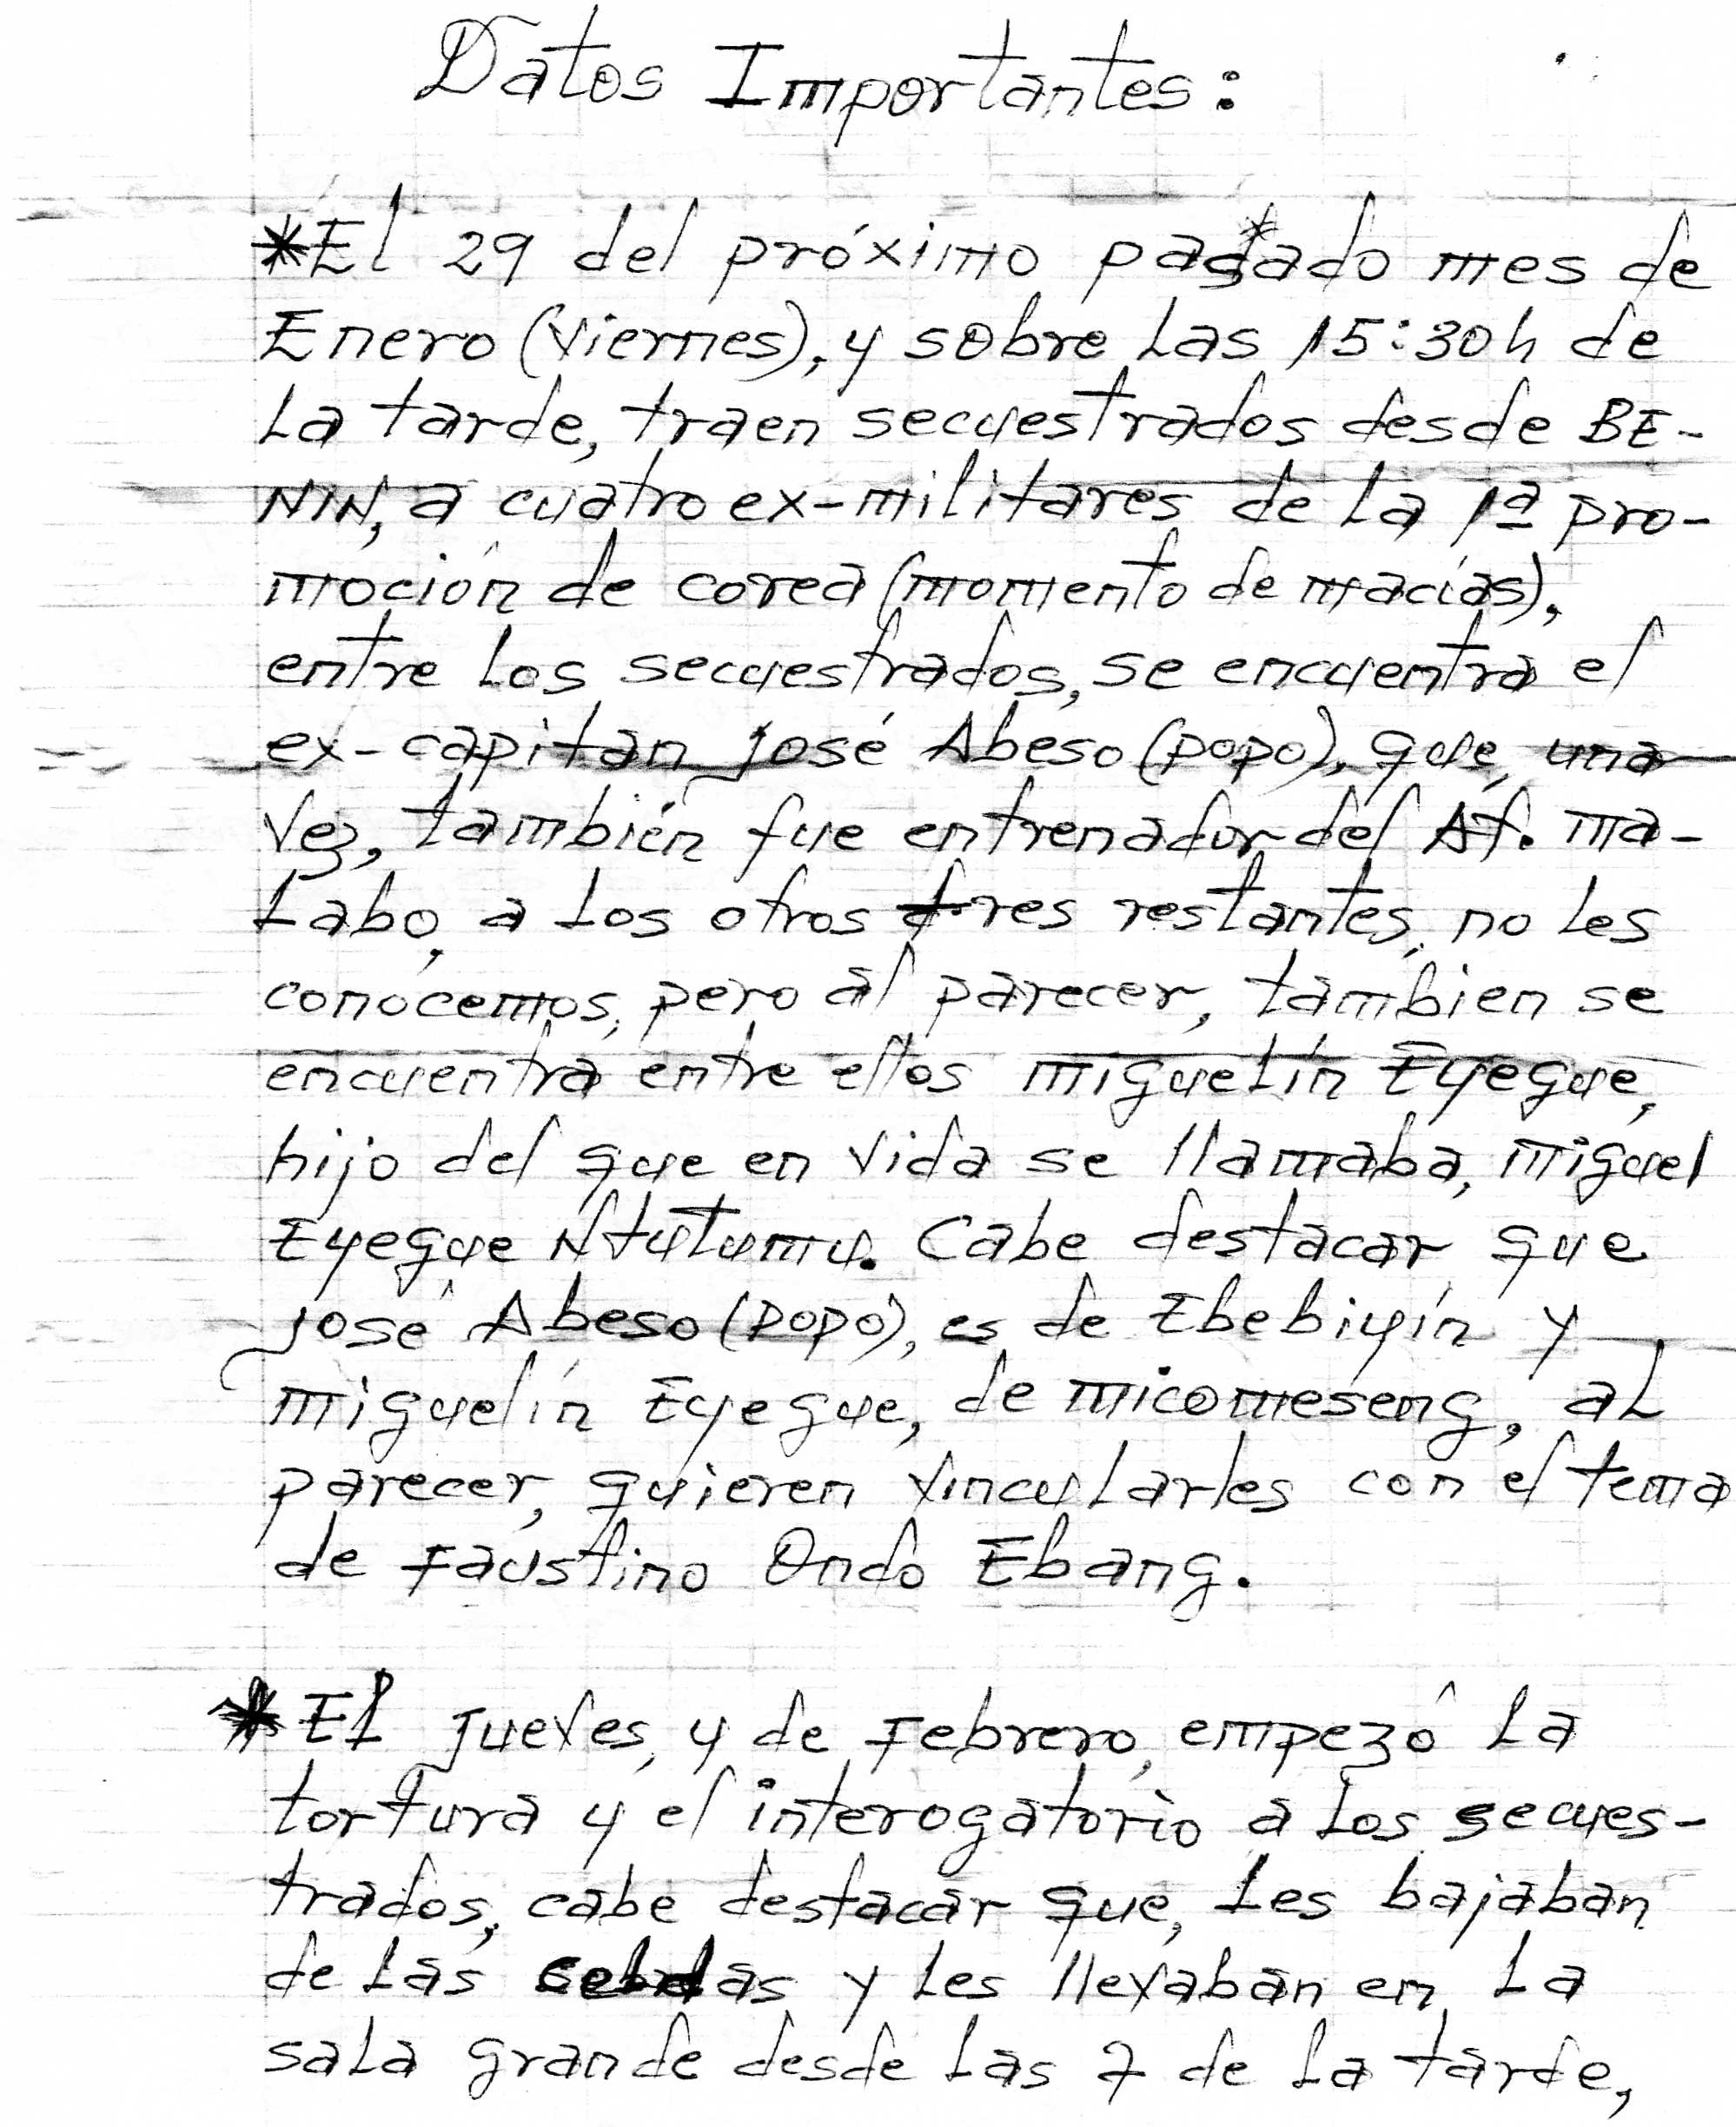 Datos Importantes:
*El 29 del próximo pasado mes de
Enero (Viernes), y sobre Las 15:30h de
La tarde, traen secuestrados desde BE-
NIN, a cuatro ex-militares de La 1ª pro-
moción de corea (momento de macías),
entre Los secuestrados, se encuentra el
ex-capitan José Abeso (popo), que, una
Vez, también fue entrenador del At. ma-
Labo, a Los otros tres restantes, no Les
conocemos, pero al parecer, tambien se
encuentra entre ellos miguelín Eyegue,
hijo del que en vida se llamaba, miguel
Eyegue Ntutumu. Cabe destacar que
José Abeso (popo), es de Ebebiyín y
miguelín Eyegue, de micomeseng, aL
parecer, quieren vincularles con el tema
de Faustino Ondo Ebang.
*El Jueves, 4 de Febrero, empezó La
tortura y el interogatorio a Los secues-
trados, cabe destacar que, Les bajaban
de Las celdas y Les llevaban en La
sala grande desde Las 7 de La tarde,